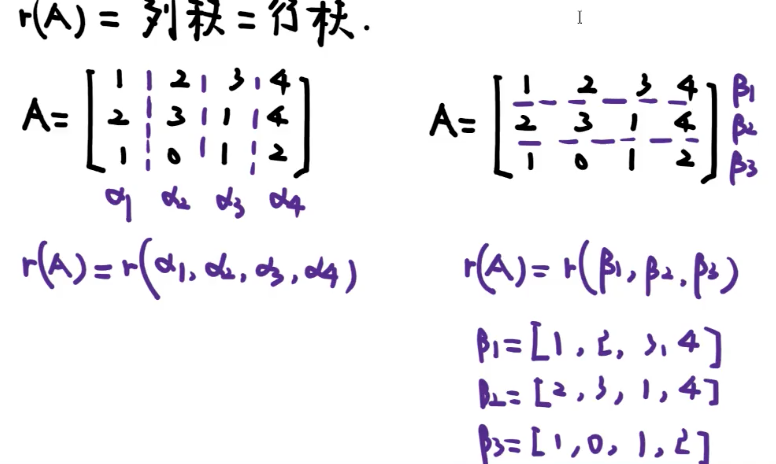 r(A) = 列秩 = 行秩.
A = [1 2 3 4
2 3 1 4
1 0 1 2]
α1 α2 α3 α4
r(A) = r(α1, α2, α3, α4)
A = [1 2 3 4] β1
2 3 1 4 β2
1 0 1 2 β3
r(A) = r(β1, β2, β3)
β1 = [1, 2, 3, 4]
β2 = [2, 3, 1, 4]
β3 = [1, 0, 1, 2]